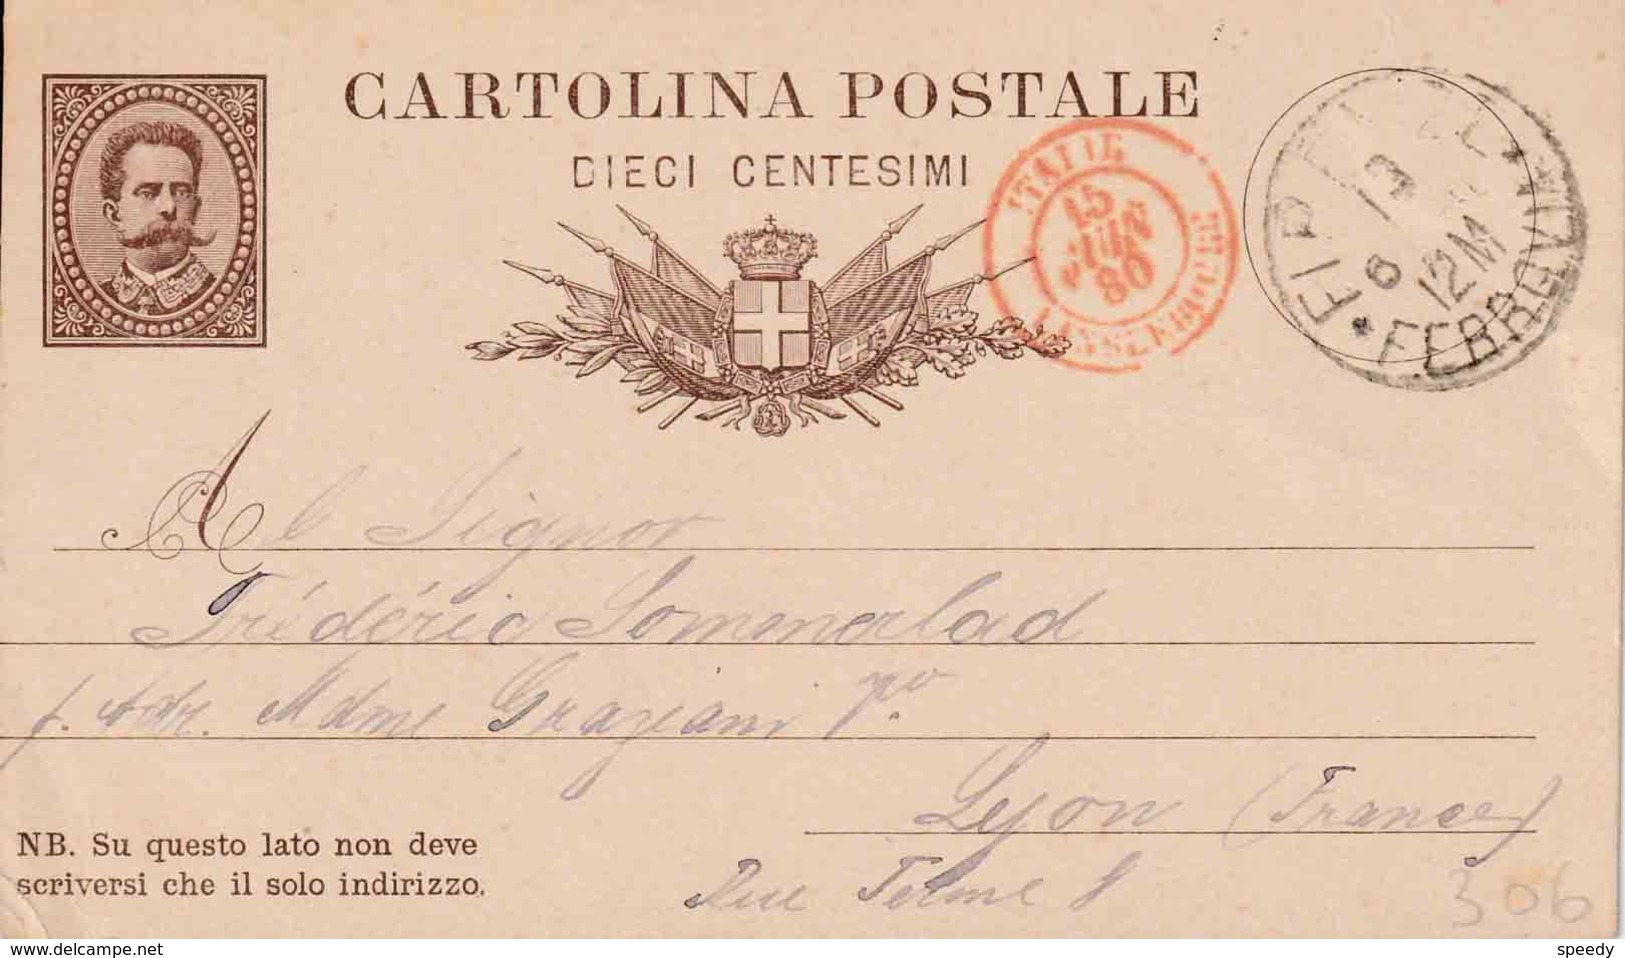 CARTOLINA POSTALE
DIECI CENTESIMI
ITALIE
15
JUIN
80
13
6
12M
FERROVIA
Al Signor
Frédéric Sommerlad
f. Adr. Mdme Graziani
Lyon (France)
Rue Ferme 8
NB. Su questo lato non deve
scriversi che il solo indirizzo.
306
www.delcampe.net
speedy